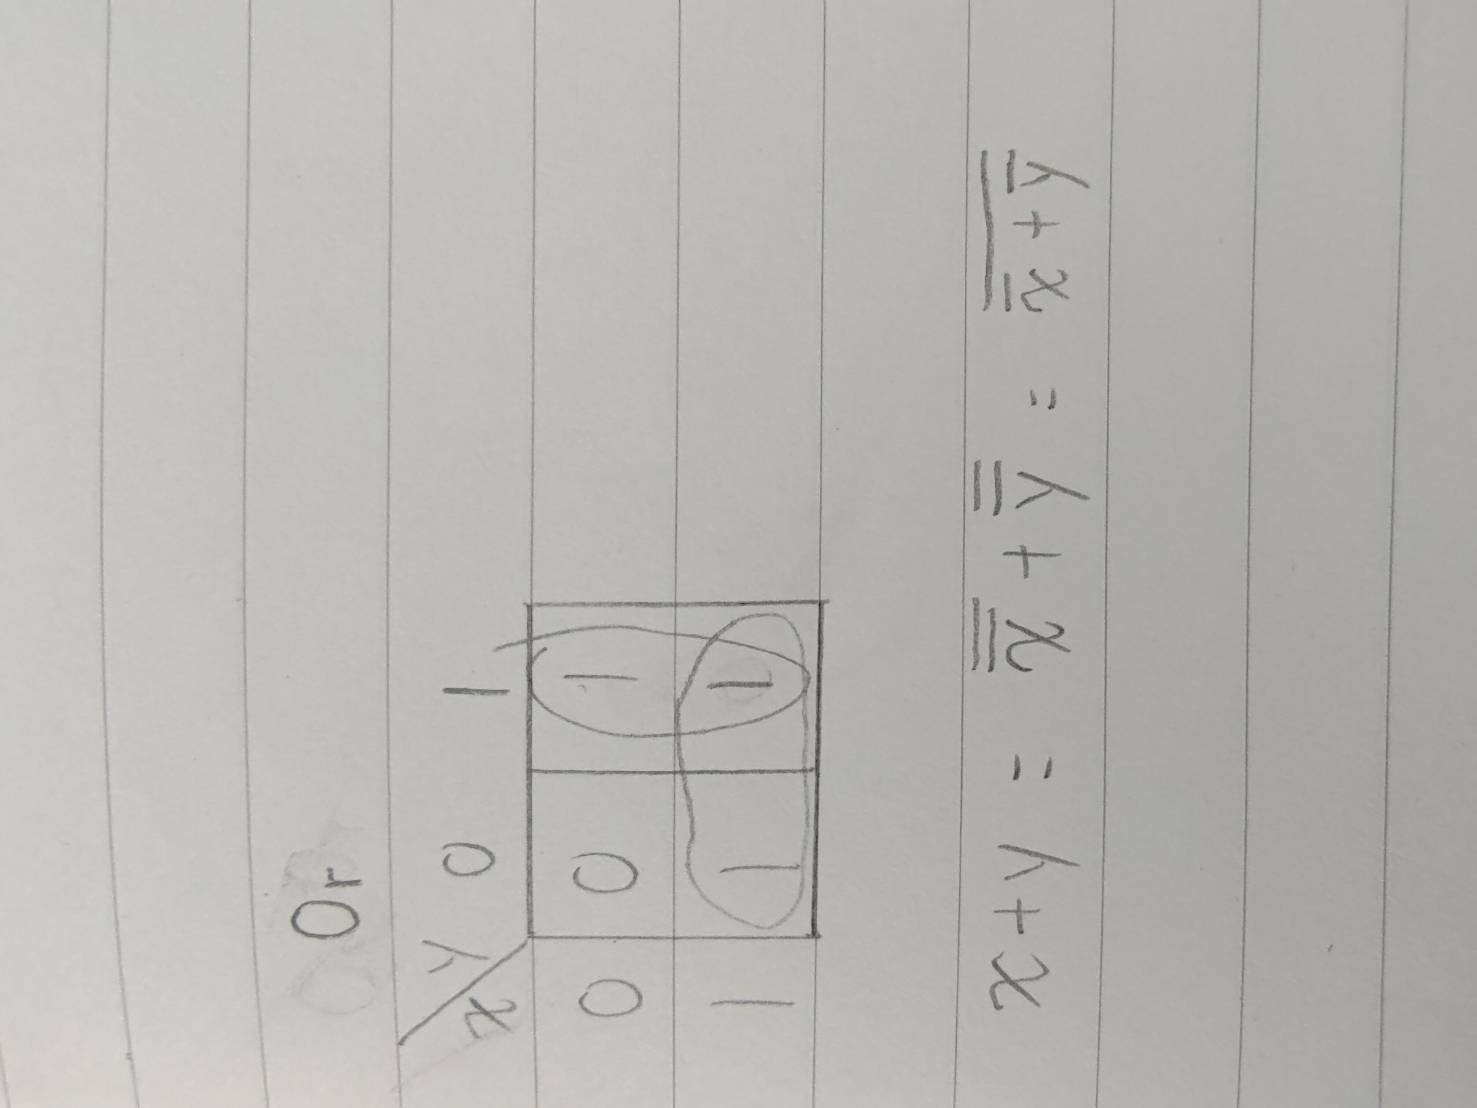 Or
x \ y 0 1
0 0 1
1 1 1
x + y = \overline{\overline{x}} + \overline{\overline{y}} = \overline{\overline{x} + \overline{y}}